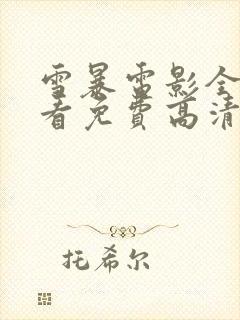 雪暴雷影全
看免費高清
托希尔